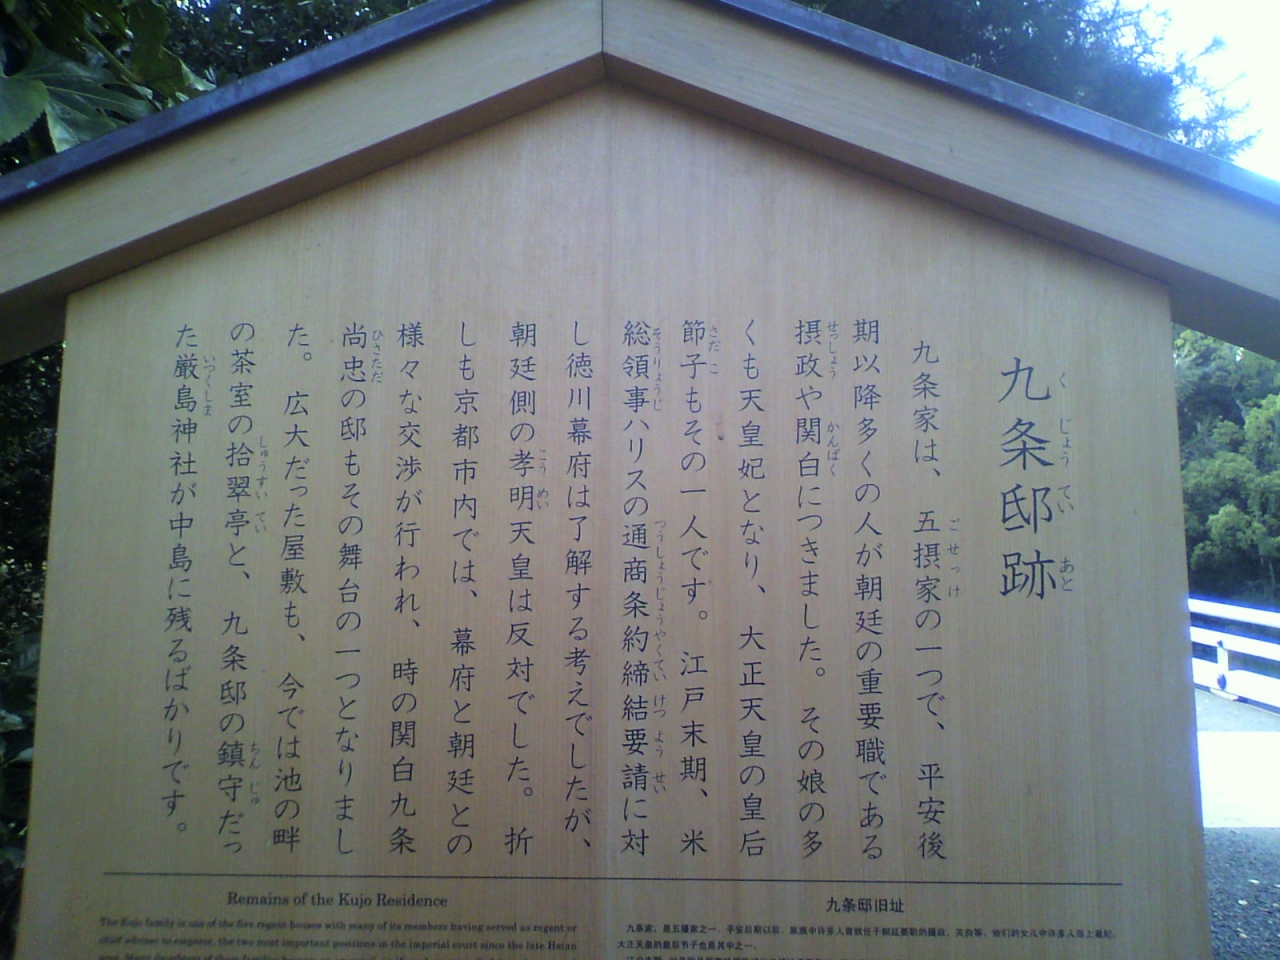 九条邸跡
九条家は、五摂家の一つで、平安後
期以降多くの人が朝廷の重要職である
摂政や関白につきました。その娘の多
くも天皇妃となり、大正天皇の皇后
節子もその一人です。江戸末期、米
総領事ハリスの通商条約締結要請に対
し徳川幕府は了解する考えでしたが、
朝廷側の孝明天皇は反対でした。折
しも京都市内では、幕府と朝廷との
様々な交渉が行われ、時の関白九条
尚忠の邸もその舞台の一つとなりまし
た。広大だった屋敷も、今では池の畔
の茶室の拾翠亭と、九条邸の鎮守だっ
た厳島神社が中島に残るばかりです。
Remains of the Kujo Residence
The Kujo family is one of the five regent houses with many of its members having served as regent or
chief adviser to emperor, the two most important positions in the imperial court since the late Heian
九条邸旧址
九条家，是五摄家之一，平安后期以后，家族中许多人曾就任于朝廷要职的摄政、关白等，他们的女儿中许多人当上皇妃，
大正天皇的皇后节子也是其中之一。